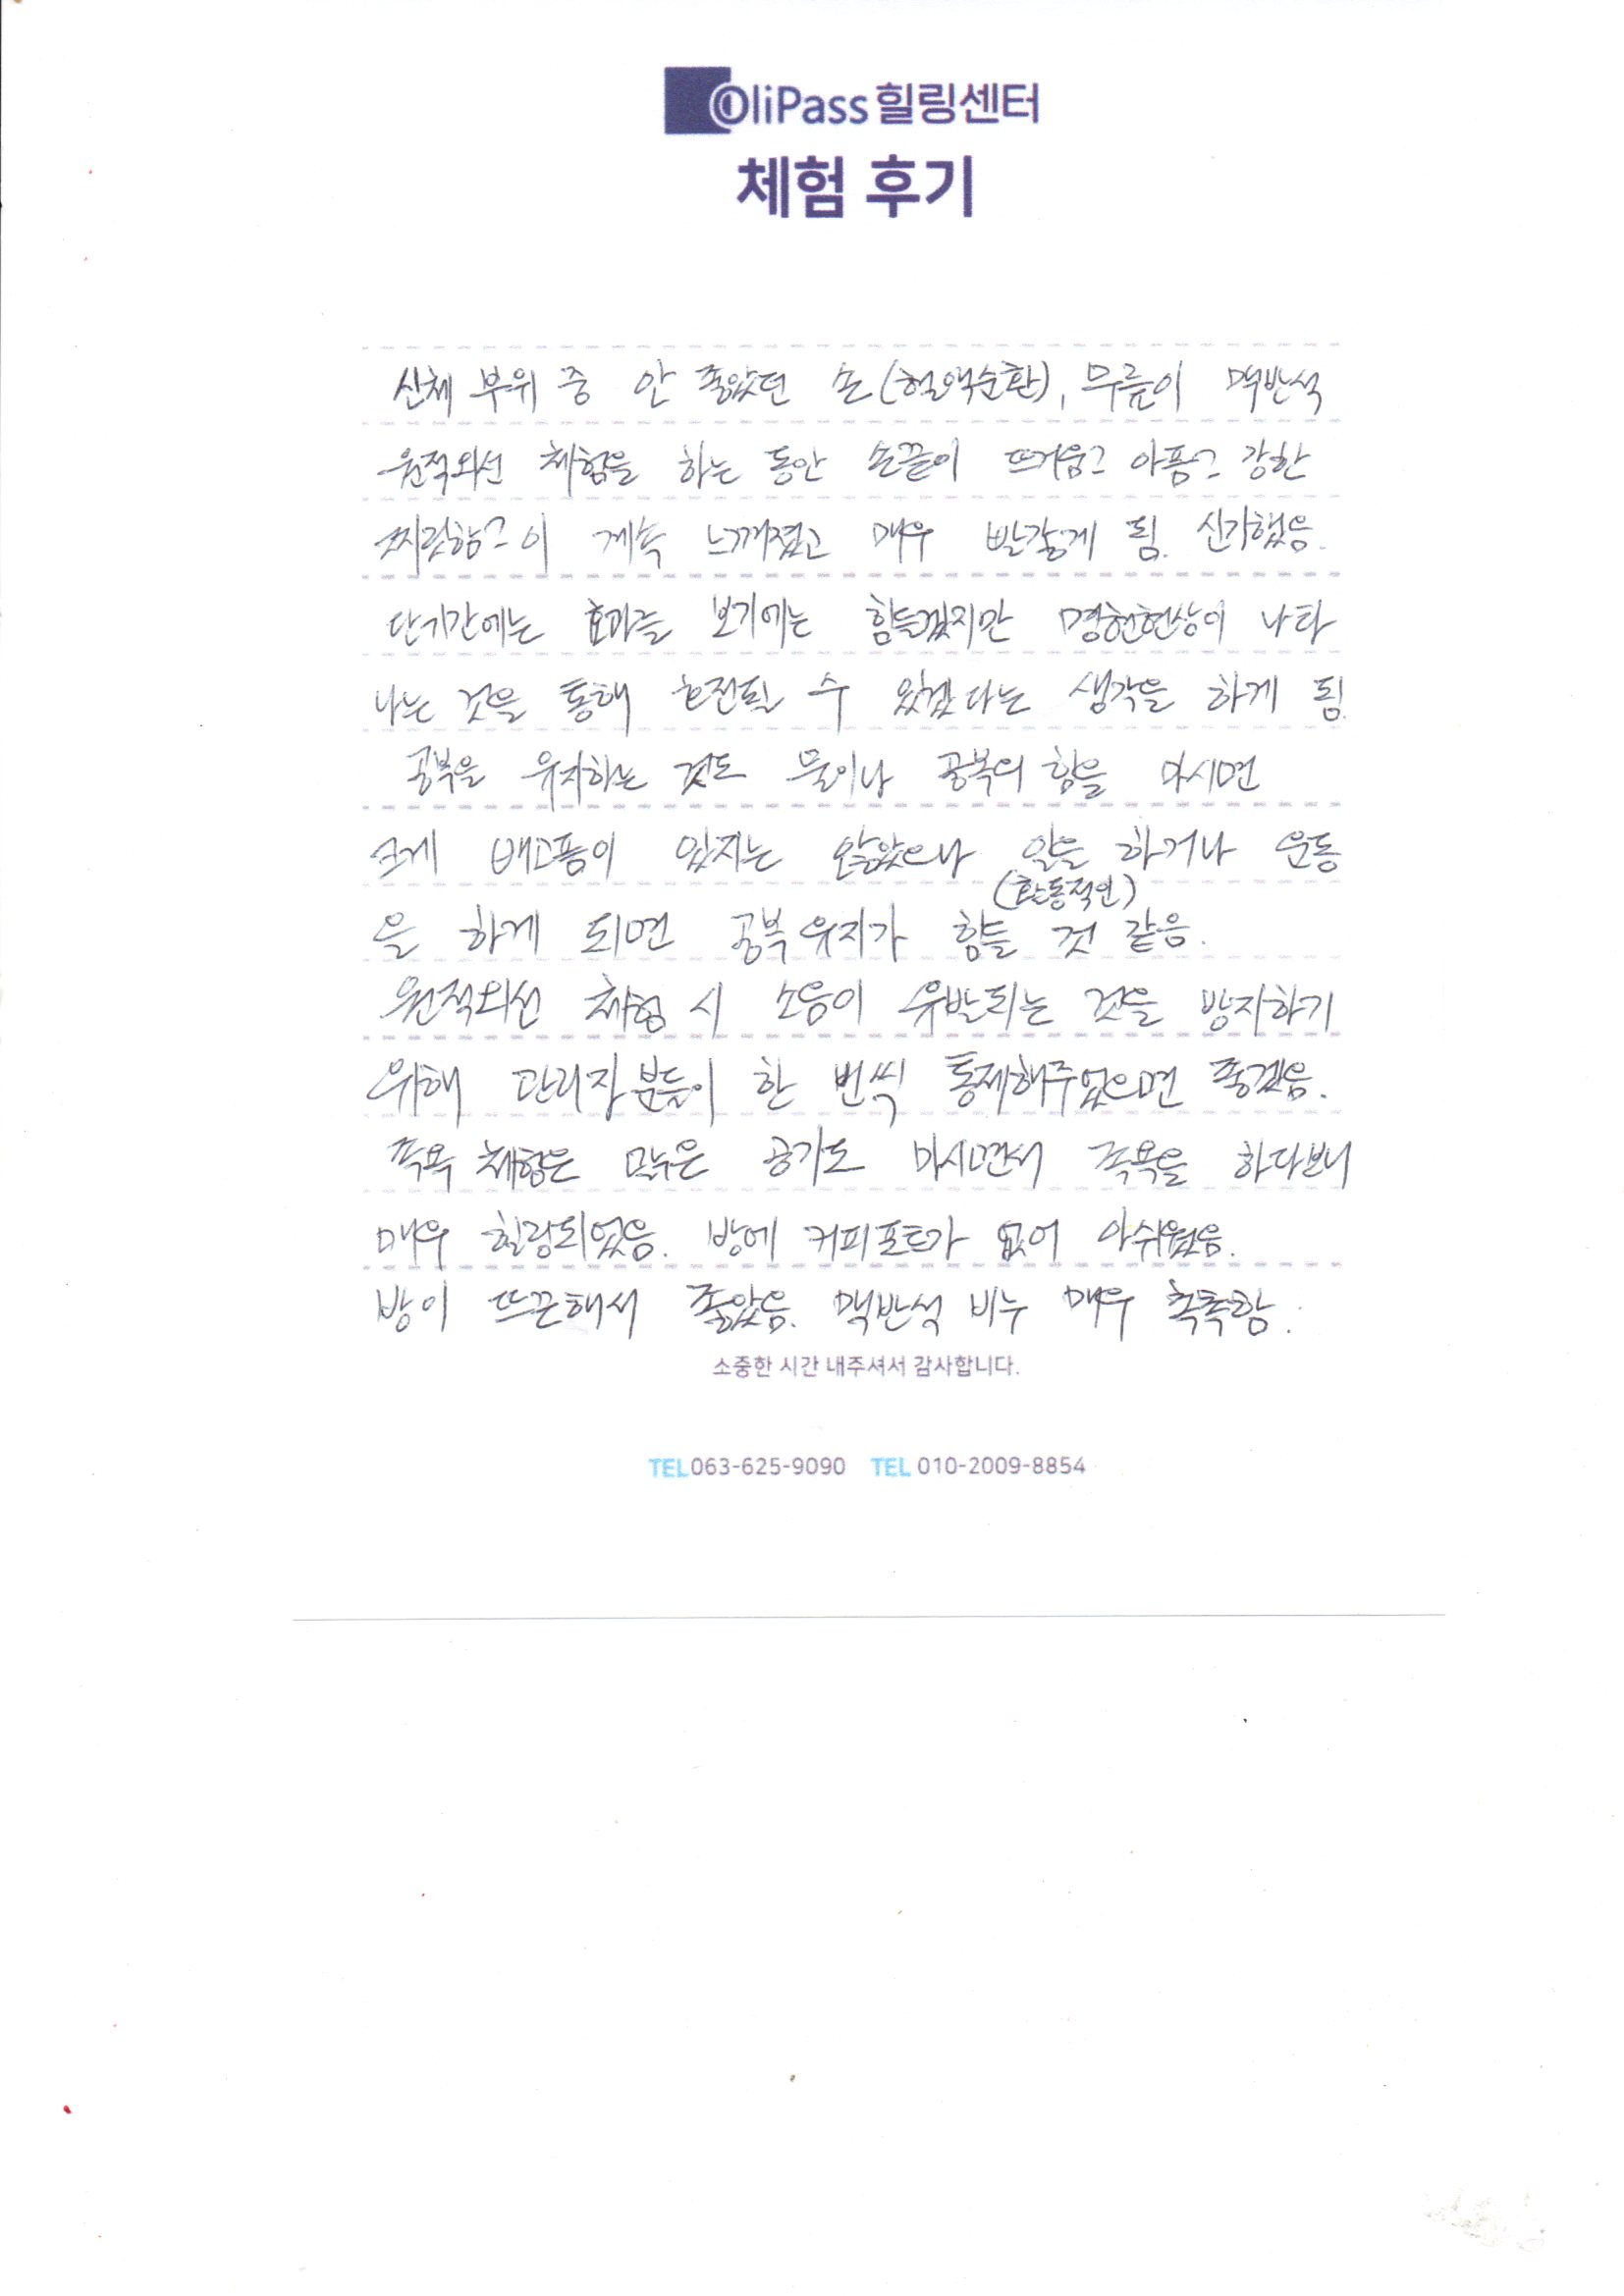 OliPass 힐링센터
체험 후기
신체 부위 중 안 좋았던 손(혈액순환), 무릎이 맥반석
원적외선 체험을 하는 동안 손끝이 뜨거움과 아픔과 강한
찌릿함이 계속 느껴졌고 매우 빨갛게 됨. 신기했음.
단기간에는 효과를 보기에는 힘들겠지만 명현현상이 나타
나는 것을 통해 호전될 수 있겠다는 생각을 하게 됨.
공복을 유지하는 것도 물이나 공복의 향을 마시면
크게 배고픔이 있지는 않았으나 일을 하거나 운동
(활동적인)
을 하게 되면 공복 유지가 힘들 것 같음.
원적외선 체험 시 소음이 유발되는 것을 방지하기
위해 관리자분들이 한 번씩 통제해주었으면 좋겠음.
족욕 체험은 맑은 공기도 마시면서 족욕을 하다보니
매우 힐링되었음. 방에 커피포트가 없어 아쉬웠음.
방이 뜨끈해서 좋았음. 맥반석 비누 매우 촉촉함.
소중한 시간 내주셔서 감사합니다.
TEL 063-625-9090 TEL 010-2009-8854